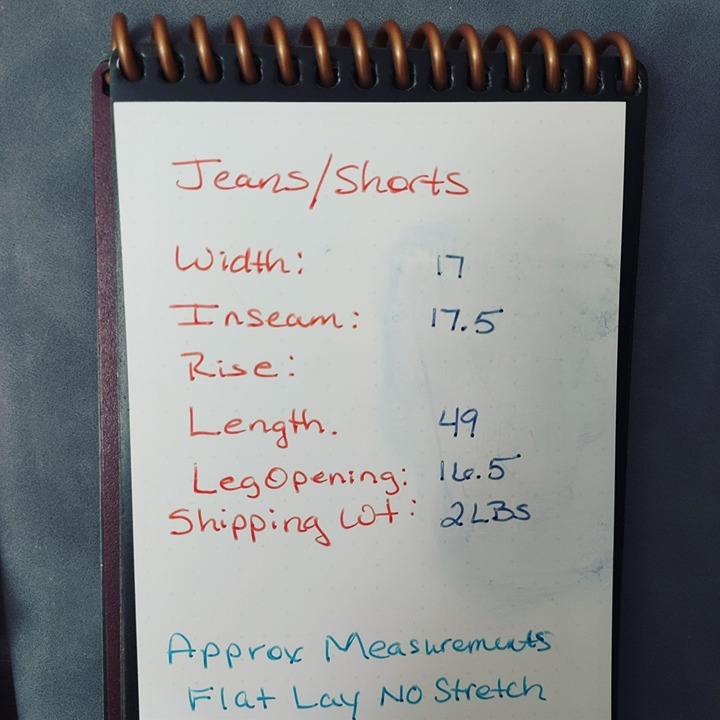 Jeans/Shorts
Width: 17
Inseam: 17.5
Rise:
Length. 49
Leg Opening: 16.5
Shipping Wt: 2 LBS
Approx Measurements
Flat Lay No Stretch